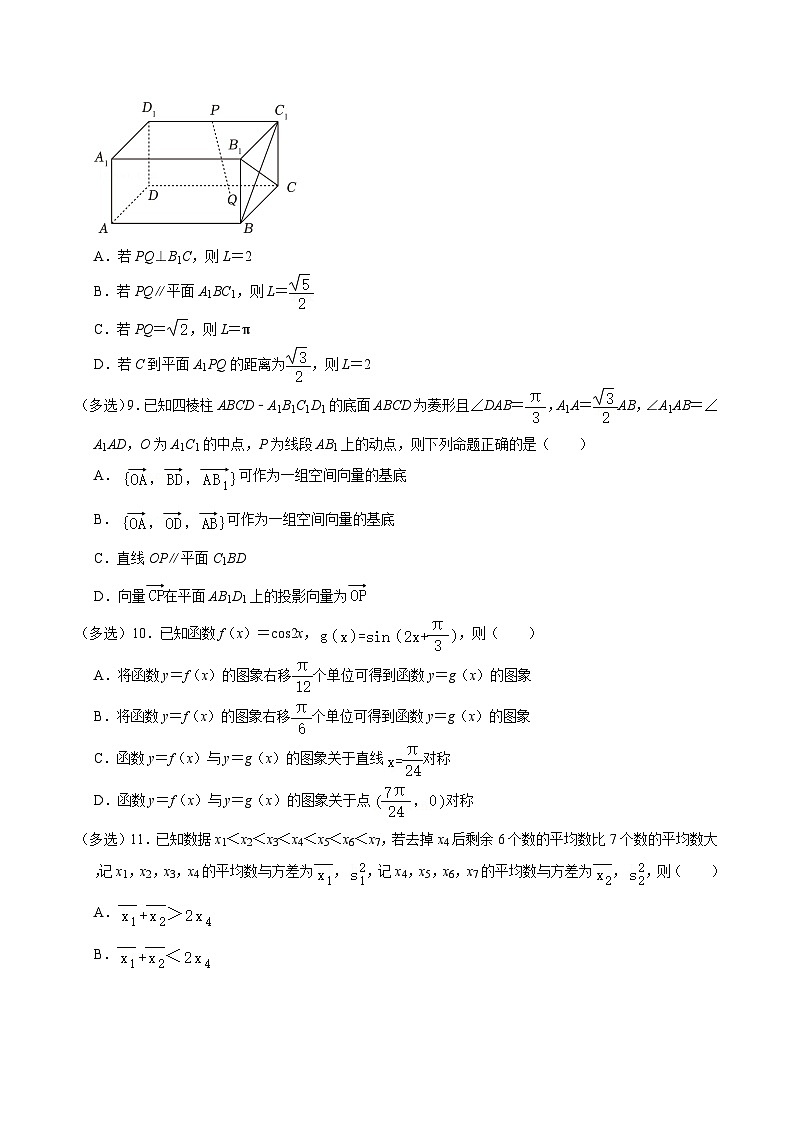 D₁ P C₁
A₁ B₁
D Q C
A B
A.若PQ⊥B₁C,则L=2
B.若PQ∥平面A₁BC₁,则L=√5/2
C.若PQ=√2,则L=π
D.若C到平面A₁PQ的距离为√3/2,则L=2
(多选)9.已知四棱柱ABCD﹣A₁B₁C₁D₁的底面ABCD为菱形且∠DAB=π/3,A₁A=√3/2AB,∠A₁AB=∠
A₁AD,O为A₁C₁的中点,P为线段AB₁上的动点,则下列命题正确的是( )
A.{OA→,BD→,AB₁→}可作为一组空间向量的基底
B.{OA→,OD→,AB→}可作为一组空间向量的基底
C.直线OP∥平面C₁BD
D.向量CP→在平面AB₁D₁上的投影向量为OP→
(多选)10.已知函数f(x)=cos2x,g(x)=sin(2x+π/3),则( )
A.将函数y=f(x)的图象右移π/12个单位可得到函数y=g(x)的图象
B.将函数y=f(x)的图象右移π/6个单位可得到函数y=g(x)的图象
C.函数y=f(x)与y=g(x)的图象关于直线x=π/24对称
D.函数y=f(x)与y=g(x)的图象关于点(7π/24,0)对称
(多选)11.已知数据x₁<x₂<x₃<x₄<x₅<x₆<x₇,若去掉x₄后剩余6个数的平均数比7个数的平均数大
,记x₁,x₂,x₃,x₄的平均数与方差为x̄₁,s₁²,记x₄,x₅,x₆,x₇的平均数与方差为x̄₂,s₂²,则( )
A.x̄₁+x̄₂>2x₄
B.x̄₁+x̄₂<2x₄